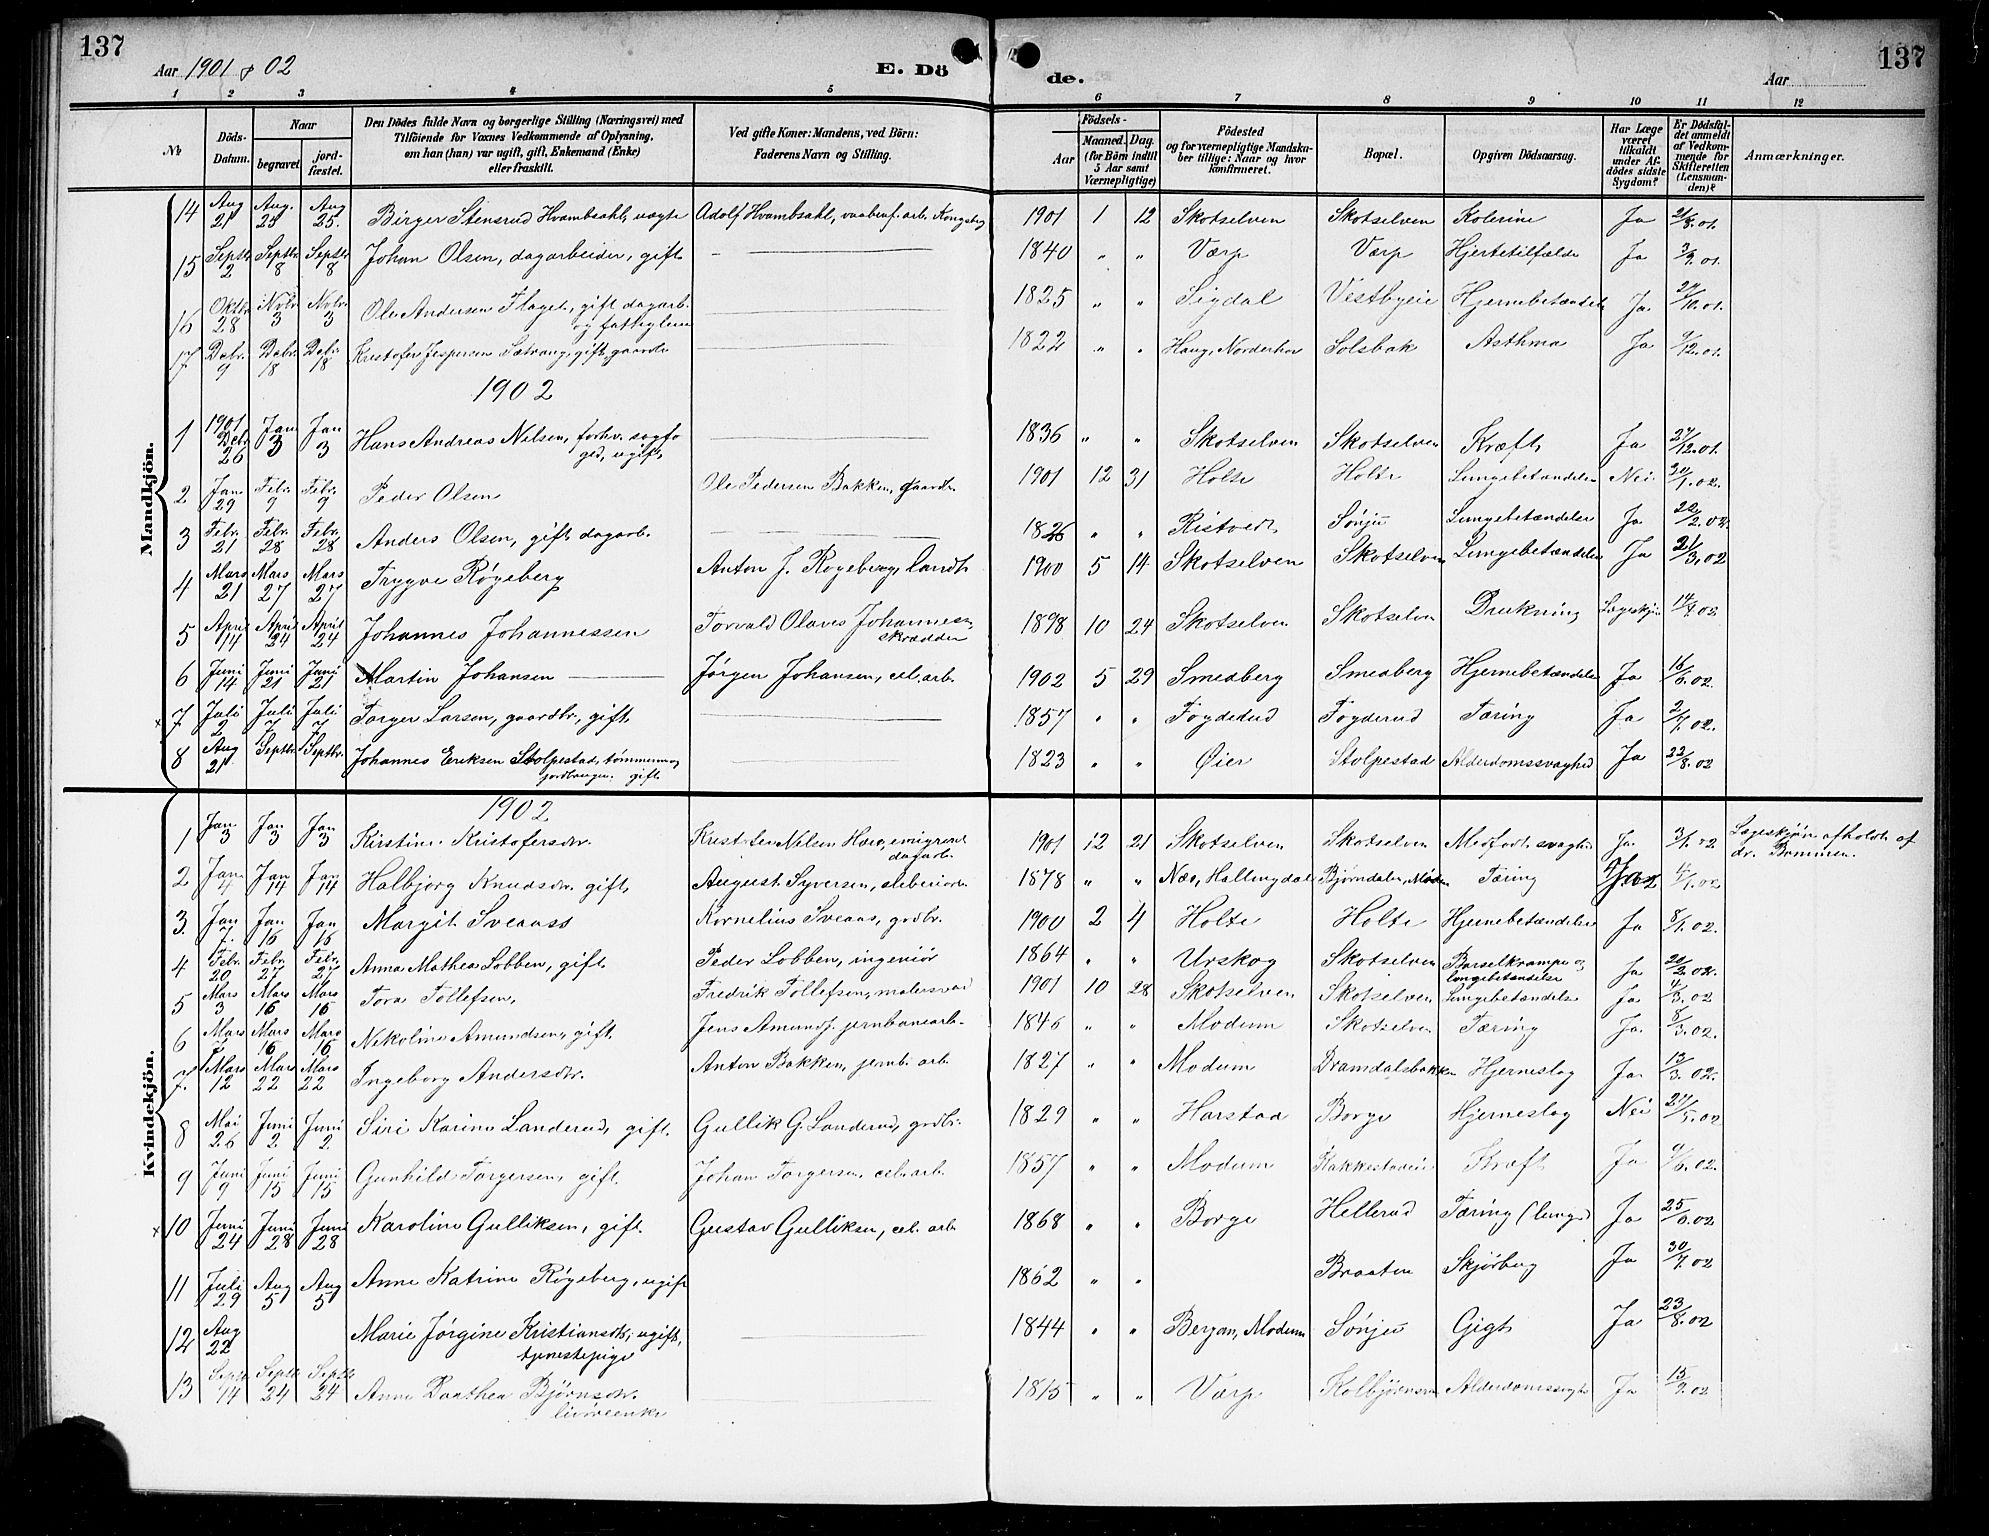 137
137
Aar 1901 & 02
E. Dö
de.
Aar
1 2 3 4 5 6 7 8 9 10 11 12
№
Döds-
Datum.
Naar
begravet
jord-
fæstet.
Den Dödes fulde Navn og borgerlige Stilling (Næringsvei) med
Tilföiende for Voxnes Vedkommende af Oplysning,
om han (hun) var ugift, gift, Enkemand (Enke)
eller fraskilt.
Ved gifte Koner: Mandens, ved Börn:
Faderens Navn og Stilling.
Födsels-
Aar
Maaned. Dag.
(for Börn indtil
5 Aar samt
Værnepligtige)
Födested
og for værnepligtige Mandska-
ber tillige: Naar og hvor
konfirmeret.
Bopæl.
Opgiven Dödsaarsag.
Har Læge
været
tilkaldt
under Af-
dödes sidste
Sygdom?
Er Dödsfal-
det anmeldt
af Vedkom-
mende for
Skifteretten
(Lensman-
den)?
Anmærkninger.
Mandkjön.
14 Aug 21 Aug. 25 Aug 25. Birger Stensrud Hvambsahl, uægte Adolf Hvambsahl, vaabenf. arb. Kongsberg 1901 1 12 Skotselven Skotselven Kolerine Ja 21/8.01.
15 Septr 2 Septbr 8 Septbr 8 Johan Olsen, dagarbeider, gift 1840 " " Værp Værp Hjertetilfælde Ja 3/9.01.
16 Oktbr 28 Novbr 3 Novbr 3 Ole Andersen Flaget, gift dagarb. 1825 " " Sigdal Vestbyeie Hjernebetændelse Ja. 29/10.01.
17 Decbr. 9 Decbr. 18 Decbr. 18 Kristofer Jespersen Sætrang, gift, gaardb. 1822 " " Haug, Norderhov Solsbak Asthma Ja 9/12.01.
1902
1 1901 Decbr 26 Jan 3 Jan 3 Hans Andreas Nilsen, forhv. sagfo
ged, ugift, 1836 " " Skotselven Skotselven Kræft Ja 27/12.01.
2 Jan 29 Febr 9 Febr. 9 Peder Olsen Ole Pedersen Bakken, gaardb. 1901 12 31 Holte Holte Lungebetændelse Nei 30/1.02.
3 Febr. 21 Febr. 28 Febr. 28 Anders Olsen, gift dagarb. 1826 " " Ristvedt Sønju Lungebetændelse Ja 22/2.02.
4 Mars 21 Mars 27 Mars 27 Trygve Røgeberg Anton J. Røgeberg, landh. 1900 5 14 Skotselven Skotselven Lungebetændelse Ja 21/3.02
5 April 14 April 24 April 24 Johannes Johannessen Torvald Olaves Johannesen
skrædder 1898 10 24 Skotselven Skotselven Drukning Lægeskjøn 14/4.02.
6 Juni 14 Juni 21 Juni 21 Martin Johansen Jørgen Johansen, cel. arb. 1902 5 29 Smedberg Smedberg Hjernebetændelse Ja 16/6.02.
x 7. Juli 2 Juli 7 Juli 7 Torger Larsen, gaardbr., gift. 1857 " " Foyderud Foyderud Tæring Ja 2/7.02.
8 Aug 21 Septbr. Septbr. Johannes Eriksen Stolpestad, tømmerm. og
jordbruger. gift 1823 " " Øier Stolpestad Alderdomssvaghed Ja 22/8.02
Kvindekjön.
1902
1 Jan 3 Jan 3 Jan 3 Kirstine Kristofersdtr. Kristofer Nilsen Hære, emigrered
dagarb. 1901 12 21 Skotselven Skotselven Medfødt svaghed Ja. 3/1.02 Lægeskjøn afholdt af
dr. Bommen.
2 Jan 4 Jan 14 Jan 14 Halbjørg Knudsdtr. gift, August Syversen, sliberiarb. 1878 " " Næs, Hallingdal Bjørndalen, Modum Tæring Ja 4/1.02
3. Jan 7. Jan 16 Jan 16 Margit Sveaass Kornelius Sveaas, gadbr. 1900 2 4 Holte Holte Hjernebetændelse Ja 8/1.02.
4 Febr. 20 Febr. 27 Febr. 27 Anna Mathea Lobben, gift. Peder Lobben, ingeniör 1864 " " Urskog Skotselven Barselkrampe og
lungebetændelse Ja 20/2.02.
5 Mars 3 Mars 16 Mars 16 Tora Tollefsen, Fredrik Tollefsen, malersvend 1901 10 28 Skotselven Skotselven Lungebetændelse Ja 4/3.02
6 Mars 7 Mars 16 Mars 16 Nikoline Amundsen, gift. Jens Amunds. jernbanearb. 1846 " " Modum Skotselven Tæring Ja. 8/3.02.
7. Mars 12 Mars 22 Mars 22 Ingeborg Andersdtr. Anton Bakken, jernb. arb. 1827 " " Modum Dramdalsbakken Hjerneslag Ja 12/3.02.
8 Mai 26 Juni 2. Juni 2. Siri Karine Landerud, gift. Gullik G. Landerud, gadbr. 1829 " " Harstad Borge Hjerneslag Nei 27/5.02
9 Juni 9 Juni 15 Juni 15 Gunhild Torgersen, gift. Johan Torgersen, cel. arb. 1857 " " Modum Rakkestadeie Kræft Ja 9/6.02.
x 10 Juni 24 Juni 28 Juni 28 Karoline Gulliksen, gift. Gustav Gulliksen, cel. arb. 1868 " " Borge Hellerud Tæring (lunge) Ja 25/6.02
11 Juli 29 Aug 5 Aug 5 Anne Katrine Røgeberg, ugift 1862 " " Braaten Skjørbug Ja 30/7.02
12 Aug 22 Marie Jørgine Kristiansdtr, ugift,
tjenestepige 1844 " " Bergan, Modum Sønju Gigt Ja 23/8.02
13 Septbr 14 Septbr 24 Septbr 24 Anne Dorthea Bjørnsdtr. 1815 " " Værp Kolbjørnsrud Alderdomssvaghed Ja 15/9.02